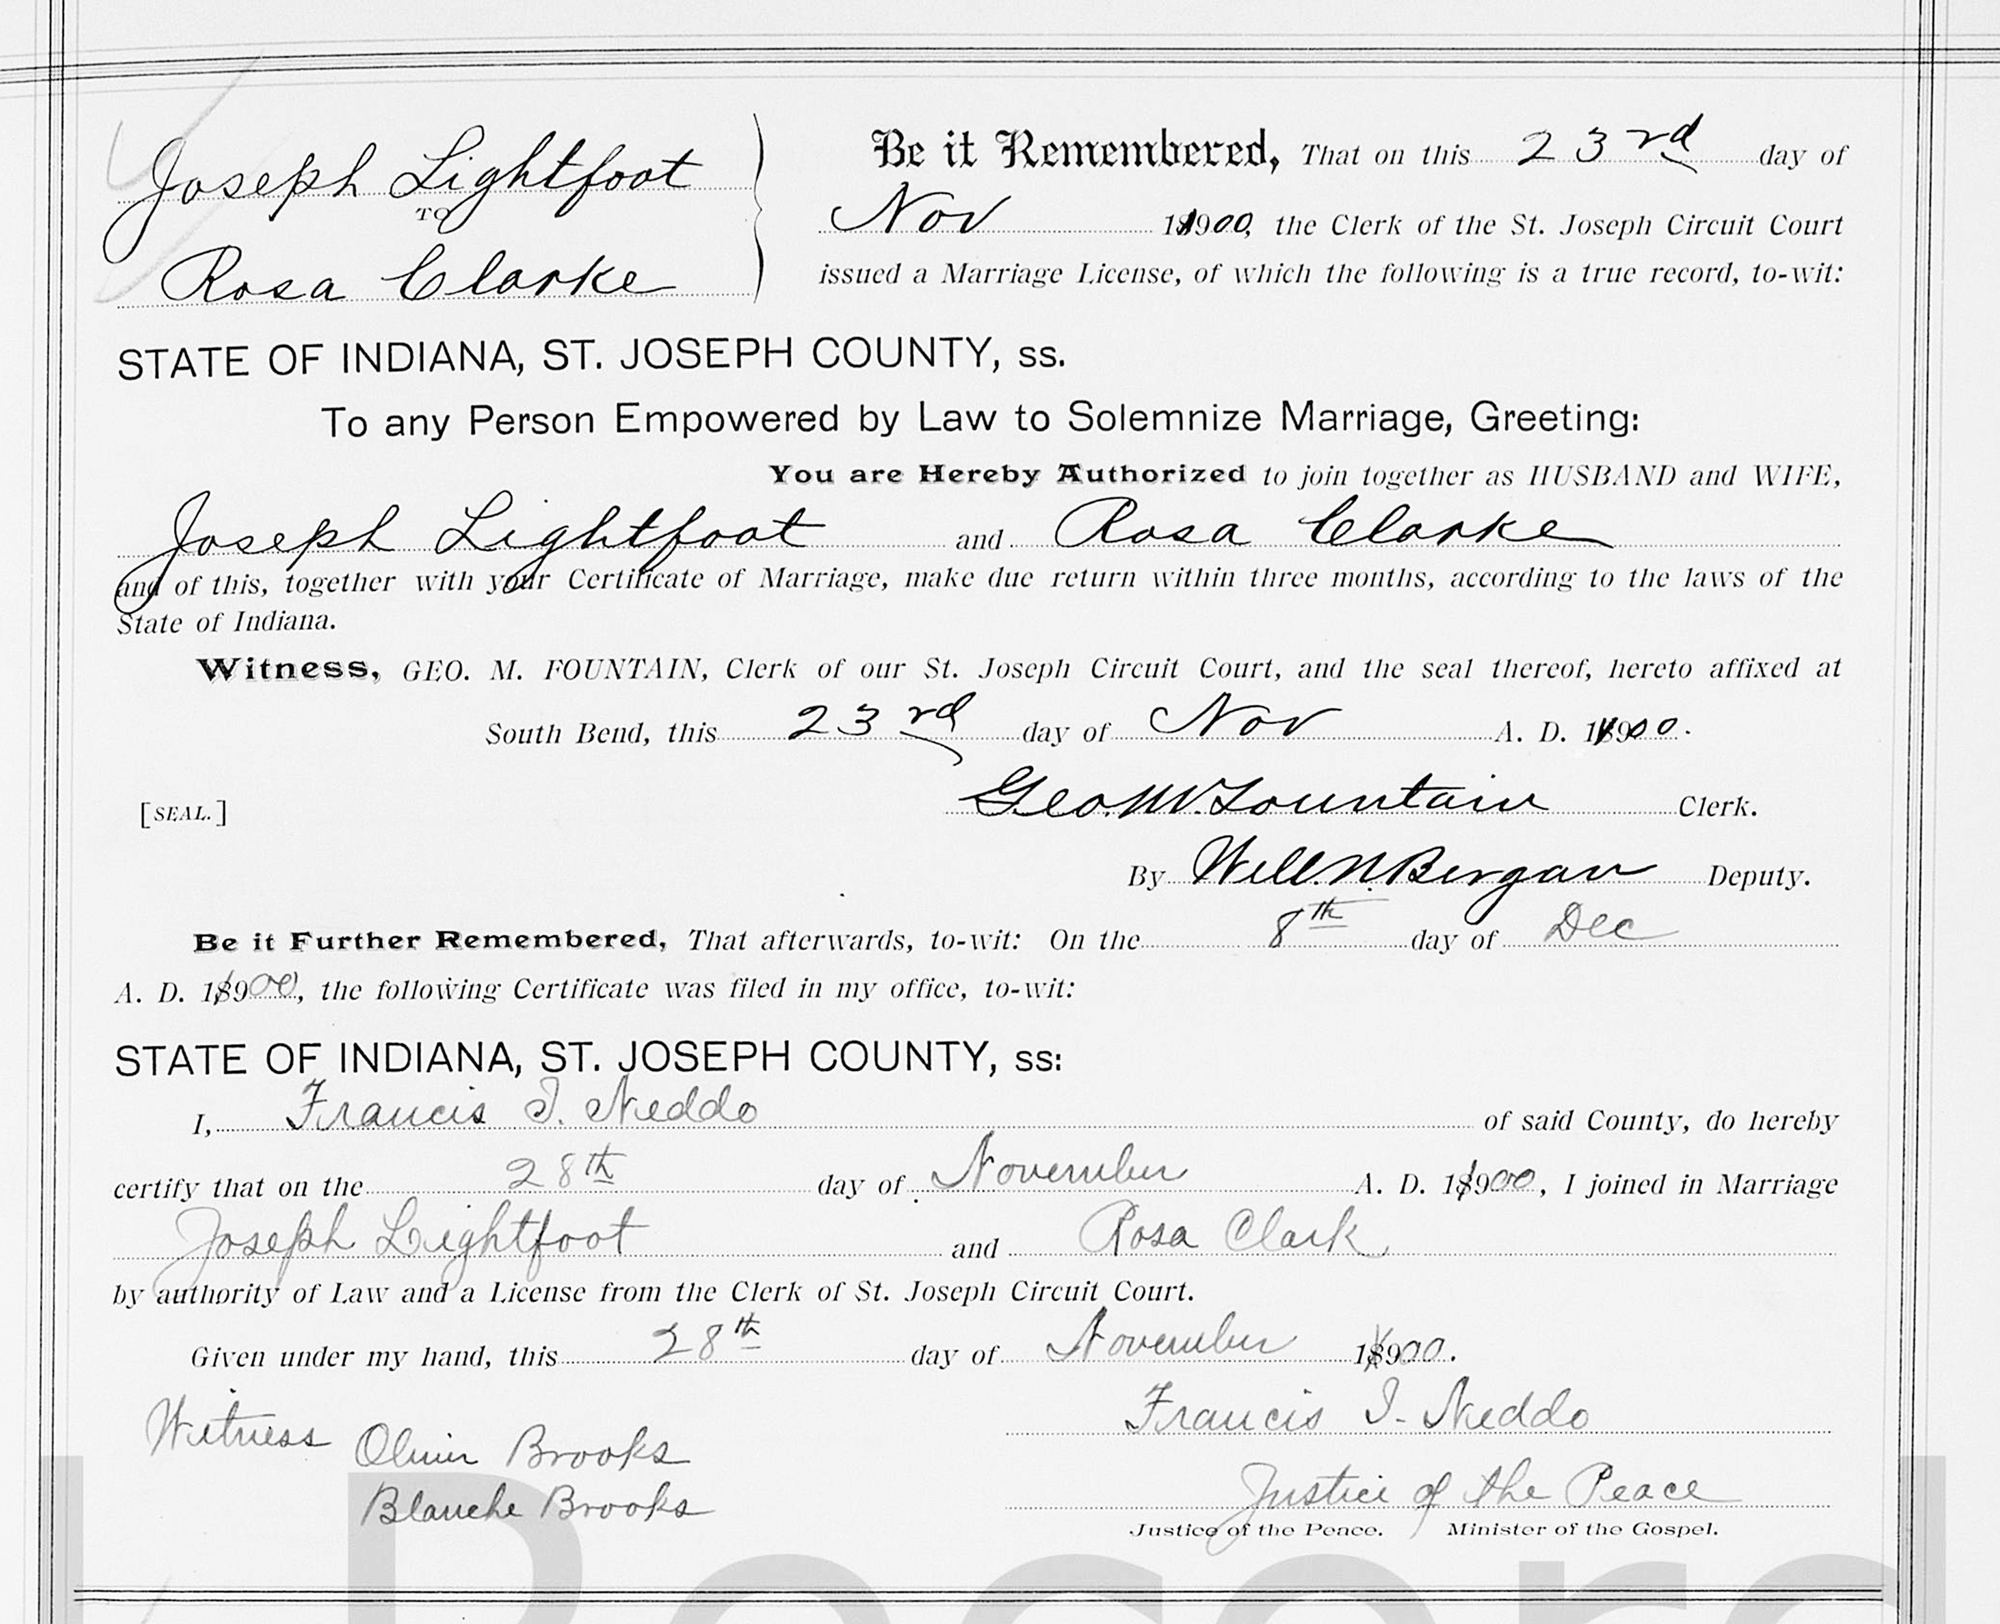 Joseph Lightfoot
TO
Rosa Clarke
Be it Remembered, That on this 23rd day of
Nov 1900, the Clerk of the St. Joseph Circuit Court
issued a Marriage License, of which the following is a true record, to-wit:
STATE OF INDIANA, ST. JOSEPH COUNTY, ss.
To any Person Empowered by Law to Solemnize Marriage, Greeting:
You are Hereby Authorized to join together as HUSBAND and WIFE,
Joseph Lightfoot and Rosa Clarke
and of this, together with your Certificate of Marriage, make due return within three months, according to the laws of the
State of Indiana.
Witness, GEO. M. FOUNTAIN, Clerk of our St. Joseph Circuit Court, and the seal thereof, hereto affixed at
South Bend, this 23rd day of Nov A. D. 1900.
[SEAL.] Geo. M. Fountain Clerk.
By Will. N. Bergan Deputy.
Be it Further Remembered, That afterwards, to-wit: On the 8th day of Dec
A. D. 1900, the following Certificate was filed in my office, to-wit:
STATE OF INDIANA, ST. JOSEPH COUNTY, ss:
I, Francis I. Neddo of said County, do hereby
certify that on the 28th day of November A. D. 1900, I joined in Marriage
Joseph Lightfoot and Rosa Clark
by authority of Law and a License from the Clerk of St. Joseph Circuit Court.
Given under my hand, this 28th day of November 1900.
Witness Oliver Brooks
Blanche Brooks
Francis I. Neddo
Justice of the Peace
Justice of the Peace. Minister of the Gospel.